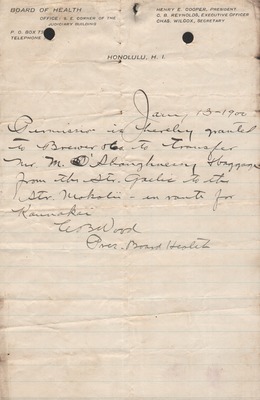 BOARD OF HEALTH
OFFICE: S. E. CORNER OF THE
JUDICIARY BUILDING
P. O. BOX
TELEPHONE
HENRY E. COOPER, PRESIDENT.
C. B. REYNOLDS, EXECUTIVE OFFICER
CHAS. WILCOX, SECRETARY
HONOLULU, H. I.
Jany 13-1900
Permission is hereby granted
to Brewer & Co. to transfer
Mr. M. baggage
from the Str. Gaelic to the
Str. Mokolii - en route for
Kaunakai
C B Wood
Pres. Board Health